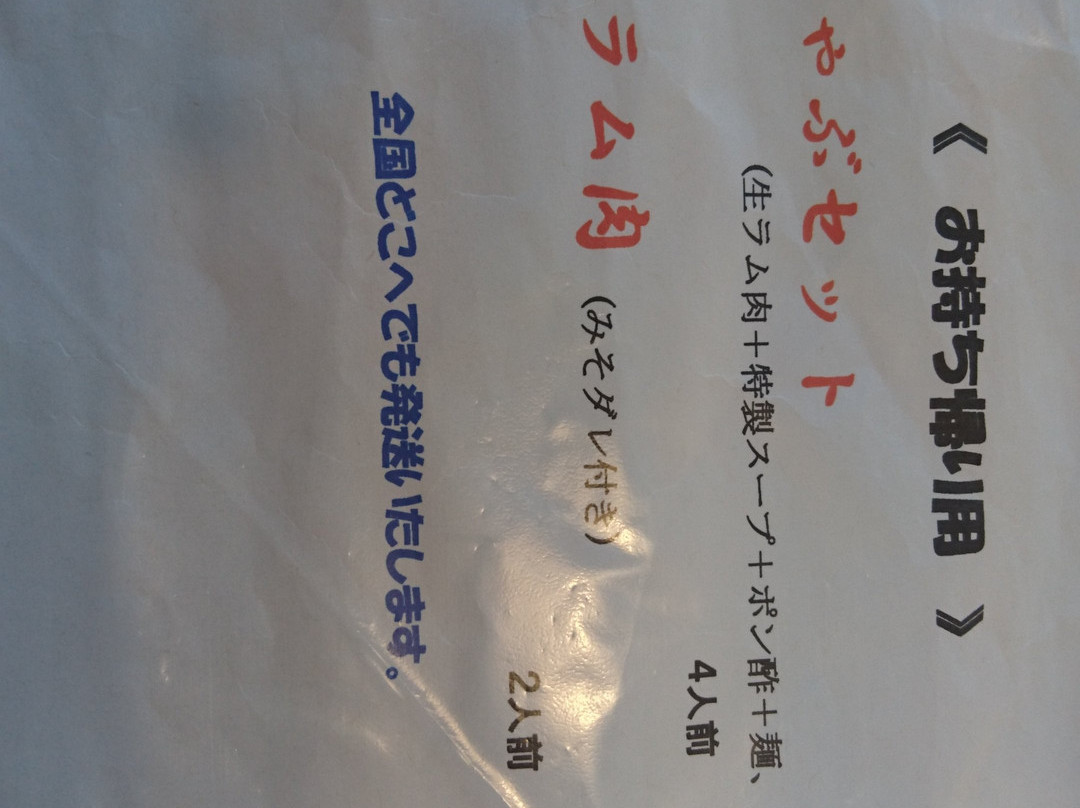 《 お持ち帰り用 》
ゃぶセット
(生ラム肉+特製スープ+ポン酢+麺、
4人前
ラム肉 (みそダレ付き)
2人前
全国どこへでも発送いたします。